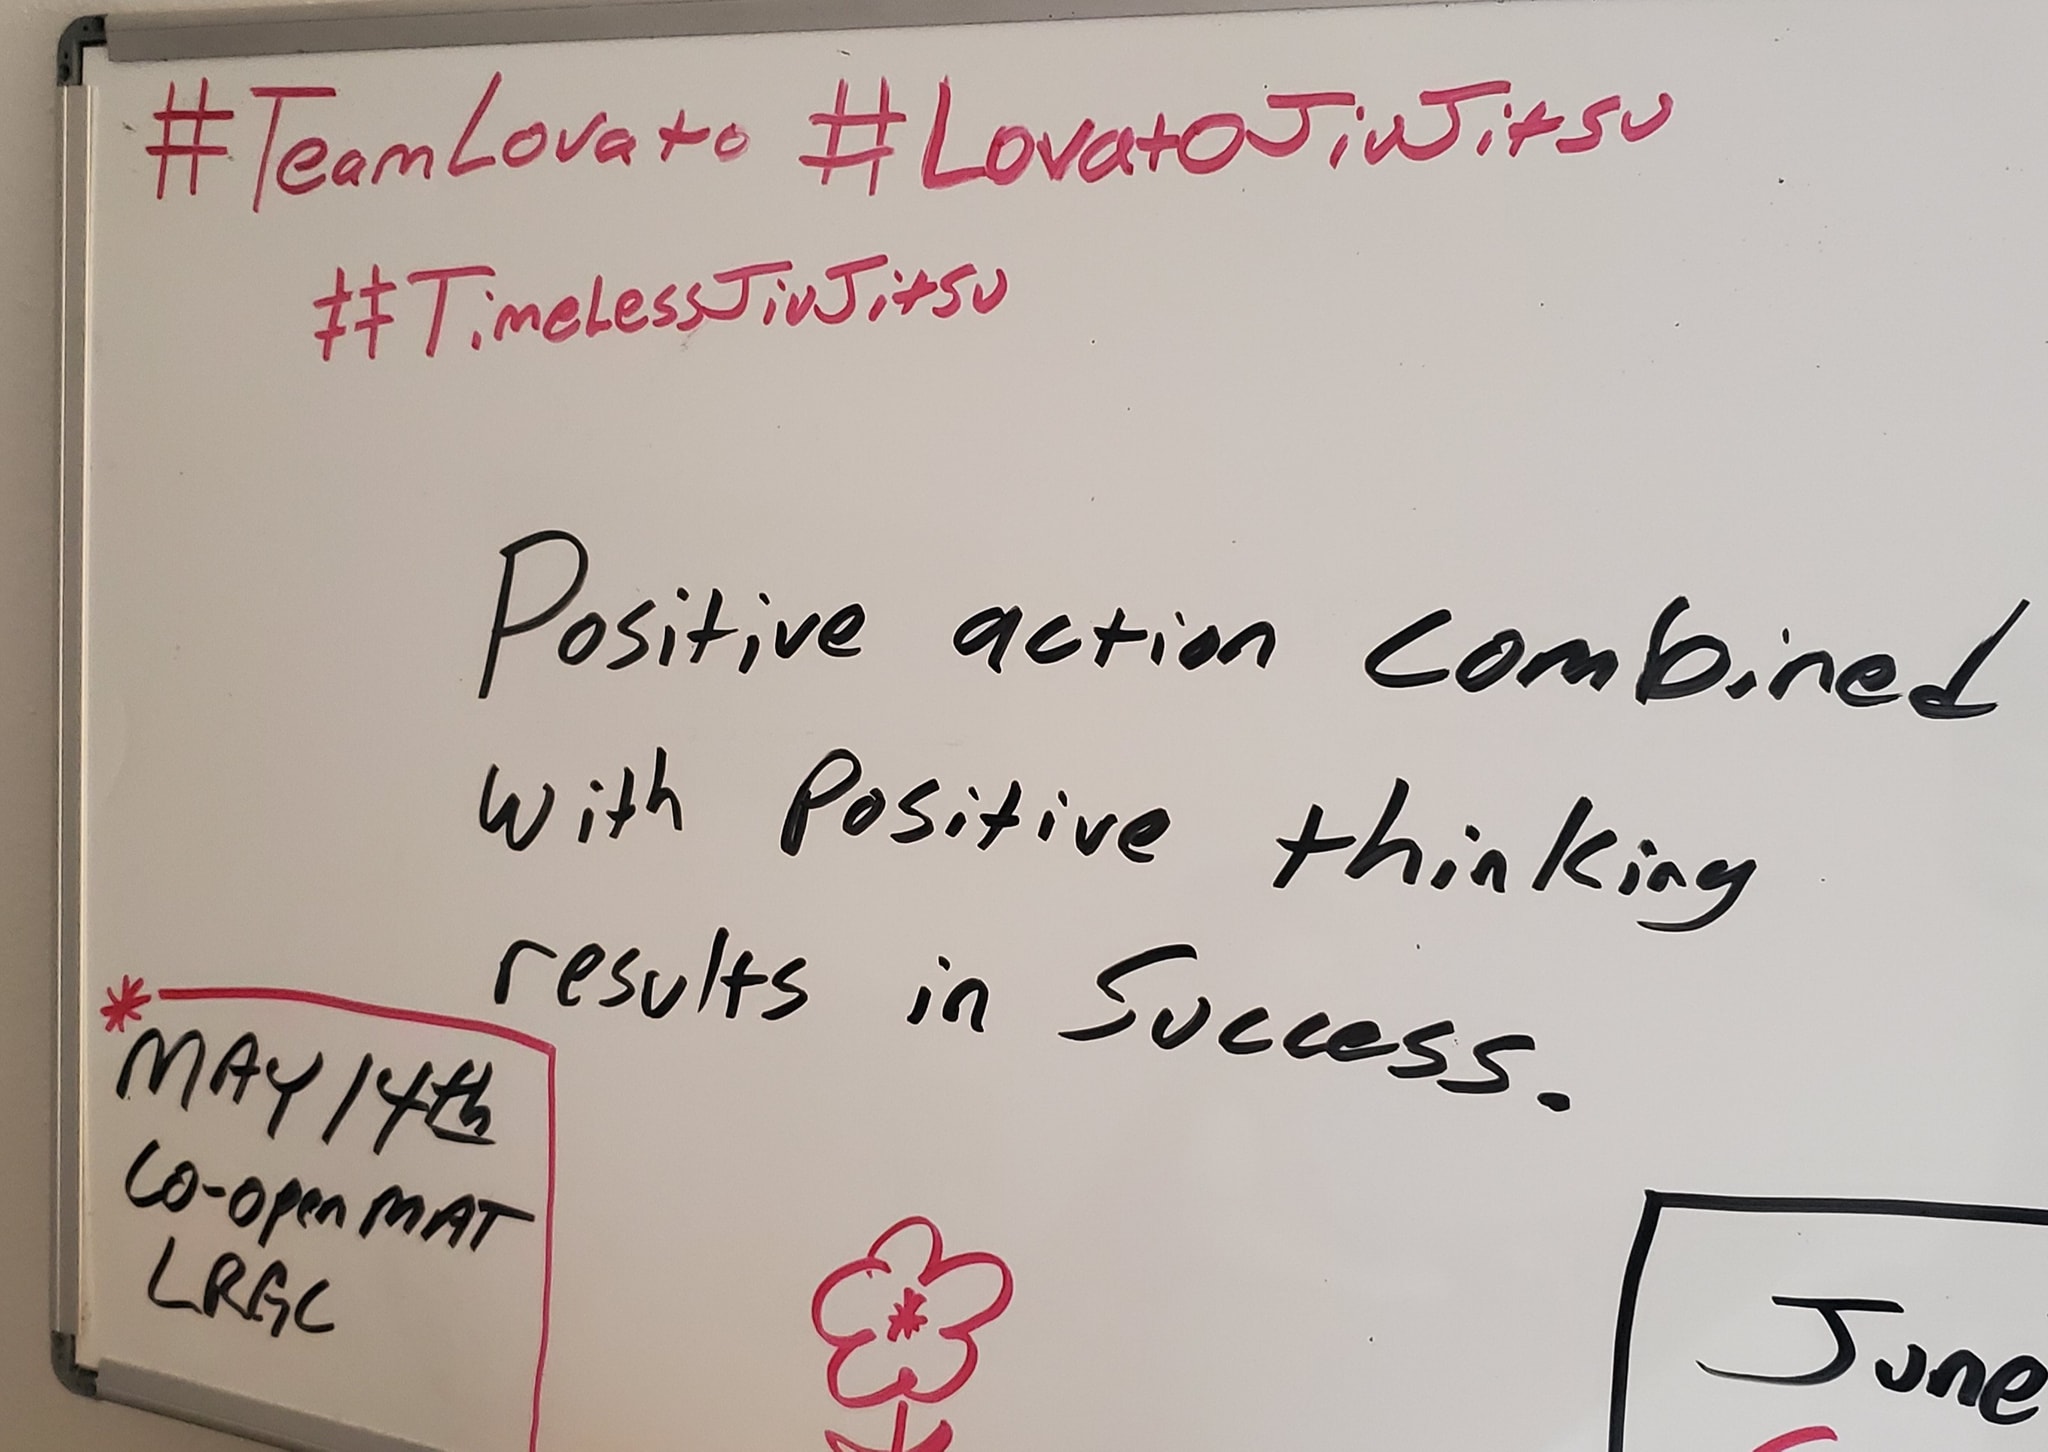 #TeamLovato #LovatoJiuJitsu
#TimeLessJiuJitsu
Positive action combined
with Positive thinking
results in Success.
* MAY 14th
Co-open MAT
LRGC
June